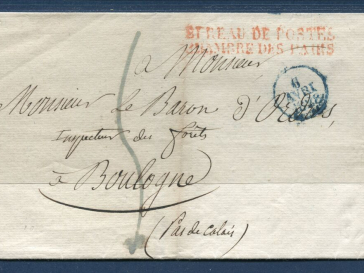 BUREAU DE POSTES
CHAMBRE DES PAIRS
à Monsieur
Monsieur Le Baron
Inspecteur des forêts
à Boulogne
(Pas de Calais)